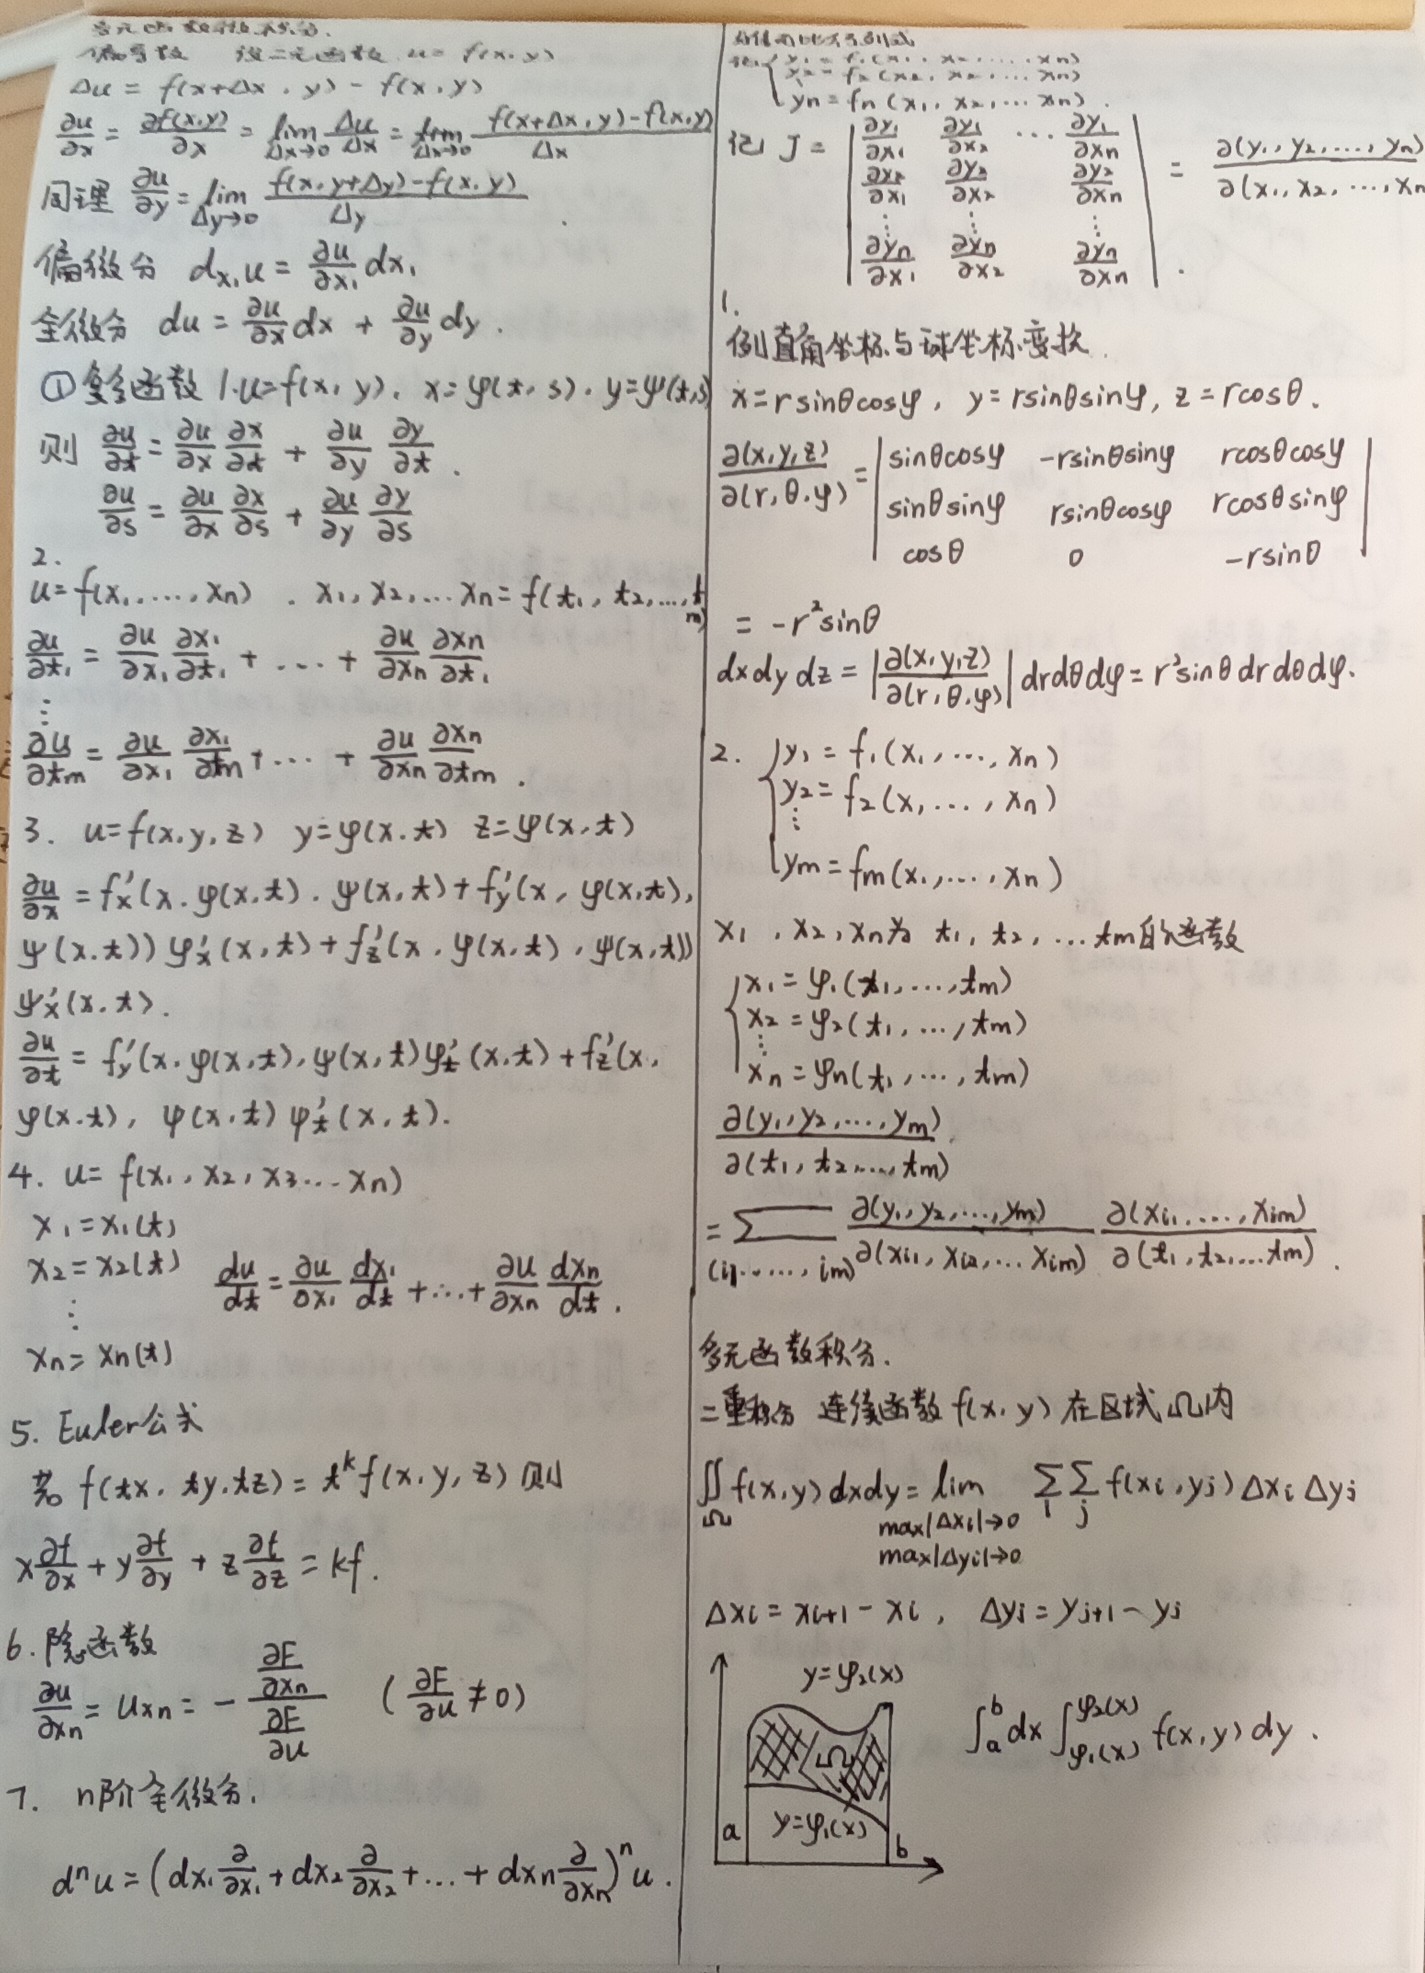 多元函数微积分.
偏导数 设二元函数 u = f(x,y)
Δu = f(x+Δx, y) - f(x,y)
∂u/∂x = ∂f(x,y)/∂x = lim_{Δx→0} Δu/Δx = lim_{Δx→0} (f(x+Δx, y)-f(x,y))/Δx
同理 ∂u/∂y = lim_{Δy→0} (f(x,y+Δy)-f(x,y))/Δy
偏微分 d_{x₁}u = ∂u/∂x₁ dx₁
全微分 du = ∂u/∂x dx + ∂u/∂y dy.
① 复合函数 1. u=f(x,y), x=φ(t,s), y=ψ(t,s)
则 ∂u/∂t = ∂u/∂x ∂x/∂t + ∂u/∂y ∂y/∂t.
∂u/∂s = ∂u/∂x ∂x/∂s + ∂u/∂y ∂y/∂s
2.
u=f(x₁,…,xn), x₁,x₂,…xn=f(t₁,t₂,…,tm)
∂u/∂t₁ = ∂u/∂x₁ ∂x₁/∂t₁ + … + ∂u/∂xn ∂xn/∂t₁
⋮
∂u/∂tm = ∂u/∂x₁ ∂x₁/∂tm + … + ∂u/∂xn ∂xn/∂tm.
3. u=f(x,y,z) y=φ(x,t) z=φ(x,t)
∂u/∂x = f'x(x,φ(x,t),ψ(x,t)+f'y(x,φ(x,t),
ψ(x,t))φ'x(x,t)+f'z(x,φ(x,t),ψ(x,t))
ψ'x(x,t).
∂u/∂t = f'y(x,φ(x,t),ψ(x,t)φ't(x,t)+f'z(x,
φ(x,t), ψ(x,t)ψ't(x,t).
4. u= f(x₁,x₂,x₃…xn)
x₁=x₁(t)
x₂=x₂(t) du/dt = ∂u/∂x₁ dx₁/dt + … + ∂u/∂xn dxn/dt.
⋮
xn=xn(t)
5. Euler公式
若 f(tx,ty,tz)=t^k f(x,y,z) 则
x∂f/∂x + y∂f/∂y + z∂f/∂z = kf.
6. 隐函数
∂u/∂xn = uxn = -(∂F/∂xn)/(∂F/∂u) (∂F/∂u≠0)
7. n阶全微分.
dⁿu = (dx₁ ∂/∂x₁ + dx₂ ∂/∂x₂ + … + dxn ∂/∂xn)ⁿ u.
y₁ = f₁(x₁, x₂, … xn)
x₂ = f₂(x₂, … xn)
yn = fn(x₁, x₂, … xn).
记 J = | ∂y₁/∂x₁ ∂y₁/∂x₂ … ∂y₁/∂xn | = ∂(y₁,y₂,…,yn)/∂(x₁,x₂,…,xn
| ∂y₂/∂x₁ ∂y₂/∂x₂ ∂y₂/∂xn |
⋮ ⋮
| ∂yn/∂x₁ ∂yn/∂x₂ ∂yn/∂xn |.
1.
例 直角坐标与球坐标变换.
x=rsinθcosφ, y=rsinθsinφ, z=rcosθ.
∂(x,y,z)/∂(r,θ,φ) = | sinθcosφ -rsinθsinφ rcosθcosφ |
| sinθsinφ rsinθcosφ rcosθsinφ |
| cosθ 0 -rsinθ |
= -r²sinθ
dxdydz = |∂(x,y,z)/∂(r,θ,φ)| drdθdφ = r²sinθdrdθdφ.
2. y₁ = f₁(x₁,…,xn)
y₂ = f₂(x,…,xn)
⋮
ym = fm(x₁,…,xn)
x₁,x₂,xn为 t₁,t₂,…tm的函数
x₁ = φ₁(t₁,…,tm)
x₂ = φ₂(t₁,…,tm)
⋮
xn = φn(t₁,…,tm)
∂(y₁,y₂,…,ym)/∂(t₁,t₂…,tm)
= ∑_{(i1,…,im)} ∂(y₁,y₂,…,ym)/∂(xi1,xi2,…xim) ∂(xi1,…,xim)/∂(t₁,t₂,…tm).
多元函数积分.
二重积分 连续函数 f(x,y)在区域Ω内
∬_Ω f(x,y)dxdy = lim_{max|Δxi|→0 max|Δyi|→0} ∑i ∑j f(xi,yj)ΔxiΔyj
Δxi = xi+1 - xi, Δyj = yj+1 - yj
y=φ₂(x)
∫_a^b dx ∫_{φ₁(x)}^{φ₂(x)} f(x,y)dy.
Ω
a y=φ₁(x) b